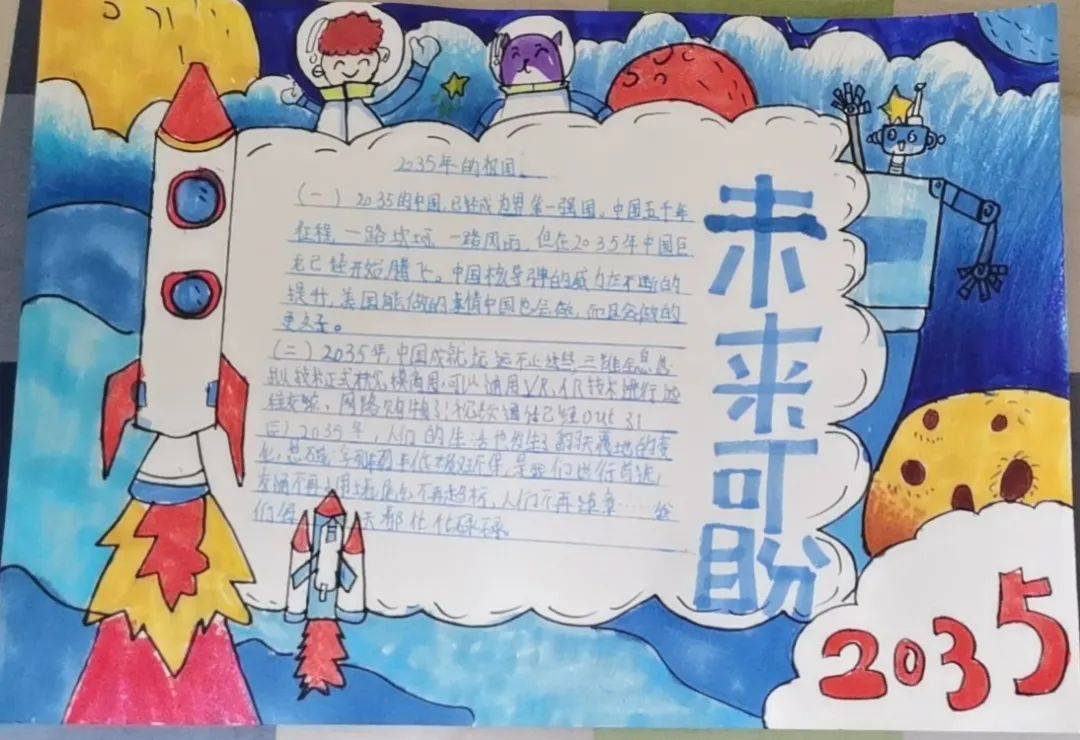 2035年的祖国。
（一）2035的中国，已经成为世界第一强国。中国五千年
征程，一路坎坷，一路风雨，但在2035年中国巨
龙已经开始腾飞。中国核导弹的威力在不断的
提升，美国能做的事情中国也会做，而且会做的
更好。
（二）2035年，中国成就远远不止这些，三维全息
技术正式 模商用，可以通用VR、AR技术进行远
程 ，网络购物！视频通话已经out了！
2035年，人们的生活也发生了翻天覆地的变
化， 环保，是我们出行首选，
交通不再拥堵， 不再超标，人们不再 …… 我
们每 天都忙忙碌碌。
未来可盼
2035